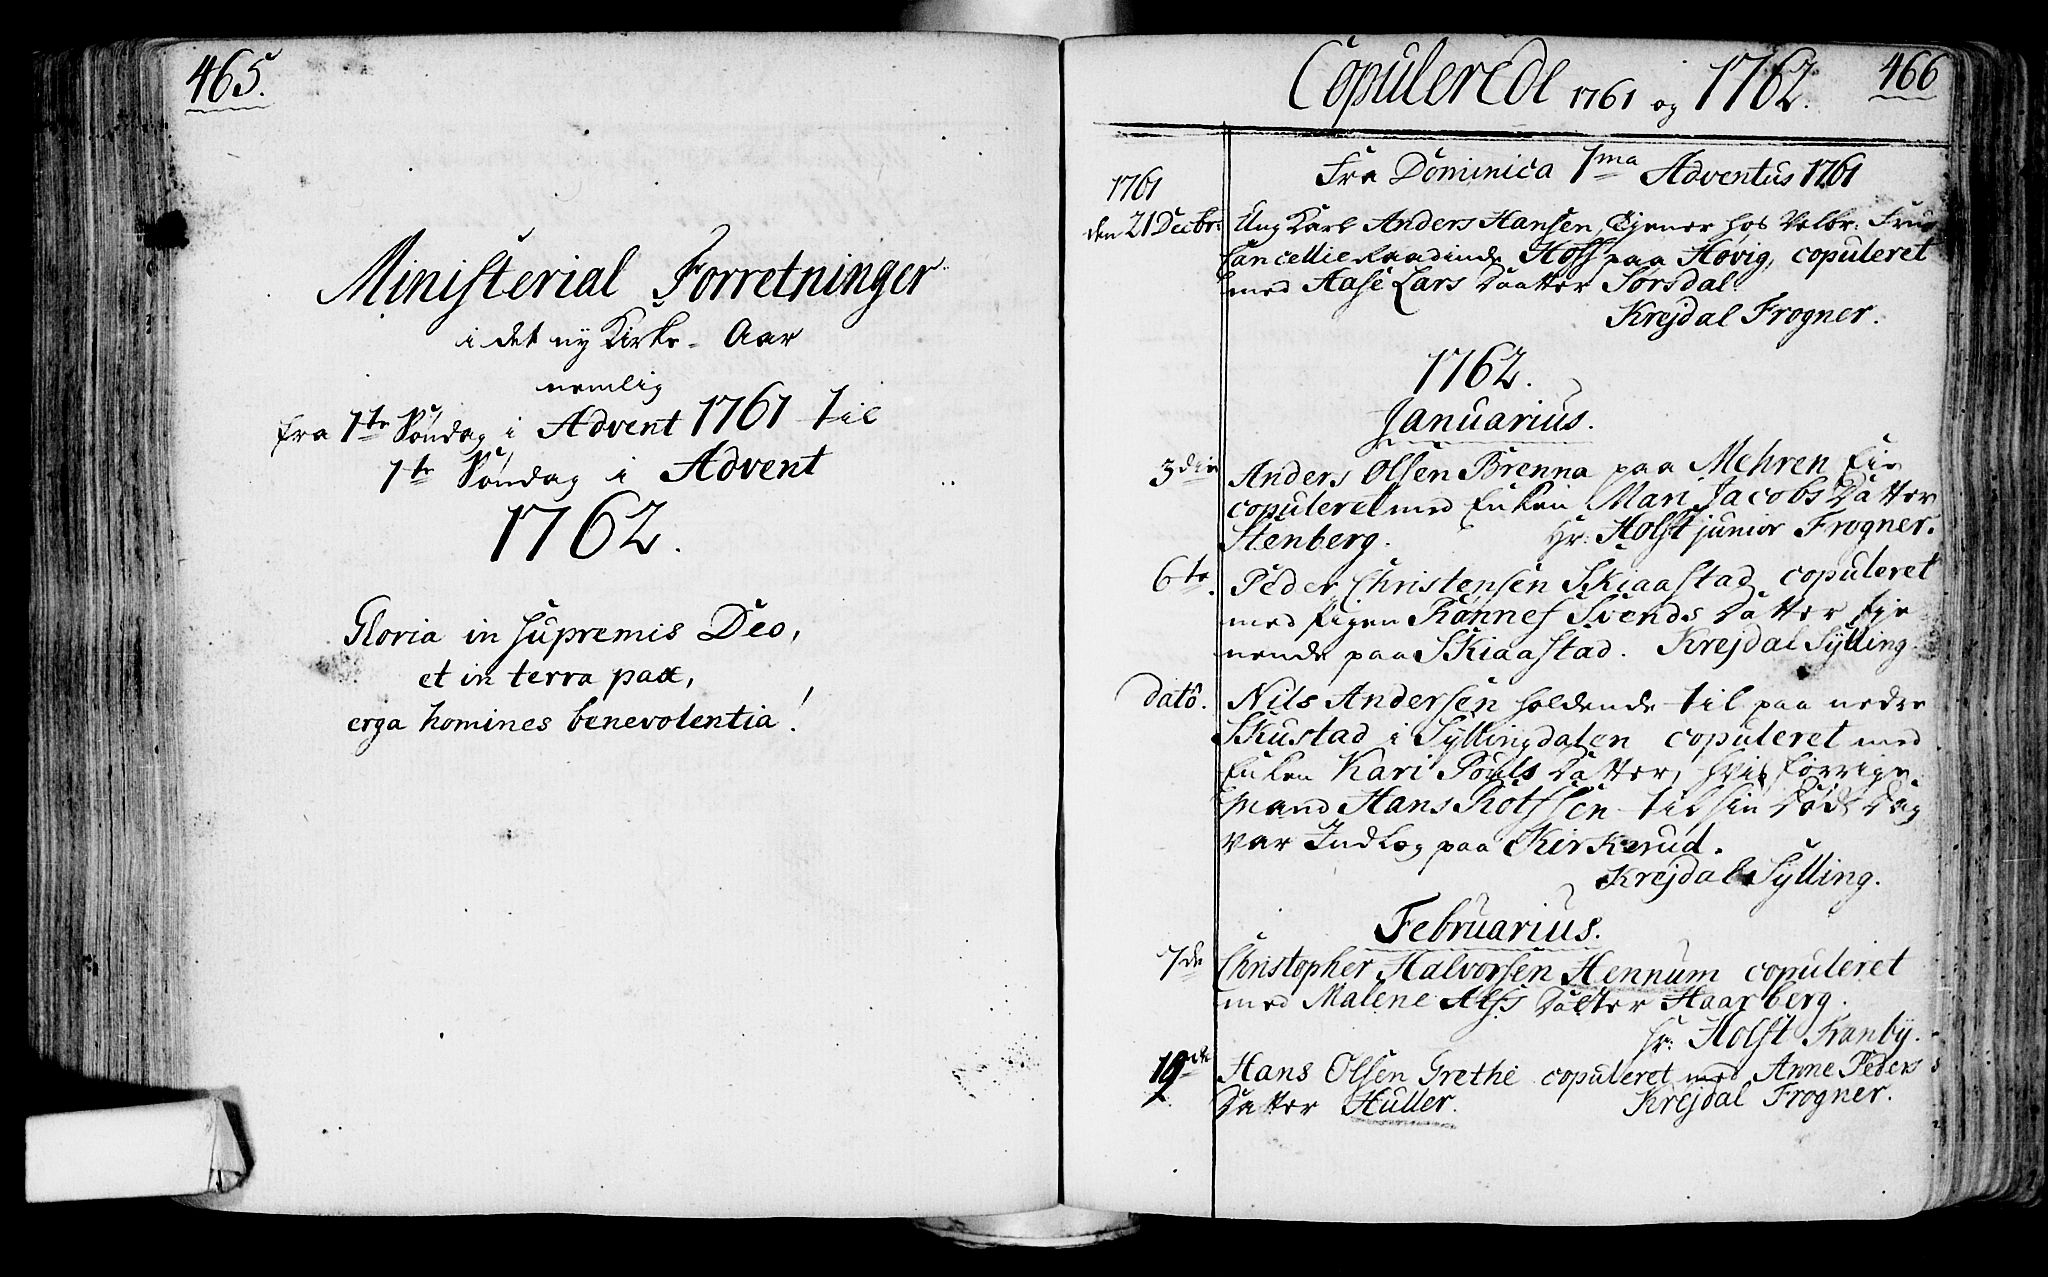 465.
Ministerial Forretninger
i det ny Kirke-Aar
nemlig
fra 1te Søndag i Advent 1761 til
1te Søndag i Advent
1762.
Gloria in supremis Deo,
et in terra pax,
erga homines benevolentia!
466
Copulerede 1761 og 1762.
Fra Dominica 1ma Adventus 1761
1761
den 21 Decbr: Ung Karl Anders Hansen, tjener hos Velbr: Frue
Cancellieraadinde Hoff paa Høvig, copuleret
med Aase Lars Daatter Sørsdal
Krejdal Frogner.
1762.
Januarius.
3die Anders Olsen Brenna paa Mehren Eie
copuleret med Enken Mari Jacobs Datter
Stenberg. Hr: Holst junior Frogner.
6te. Peder Christensen Skiaastad copuleret
med Pigen Rønnef Svends Datter tje-
nende paa Skiaastad. Krejdal Sylling
dató. Nils Andersen holdende til paa nedre
Skustad i Syllingdalen copuleret med
Enken Kari Pouls Datter, hvis forrige
Mand Hans Rolfsen til sin Døds Dag
var Indlog paa Kirkerud.
Krejdal Sylling.
Februarius.
7de Christopher Halvorsen Hennum copuleret
med Malene Alfs Datter Haarberg.
Hr: Holst Tranby.
19de Hans Olsen Grethe copuleret med Anne Peders
Datter Huller. Krejdal Frogner.